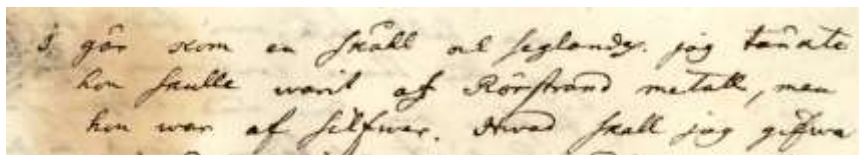 I går kom en skåhl och seglands. jag tänkte
hon skulle warit af Rörstrand metall, men
hon war af silfwer. Hwad skall jag gifwa